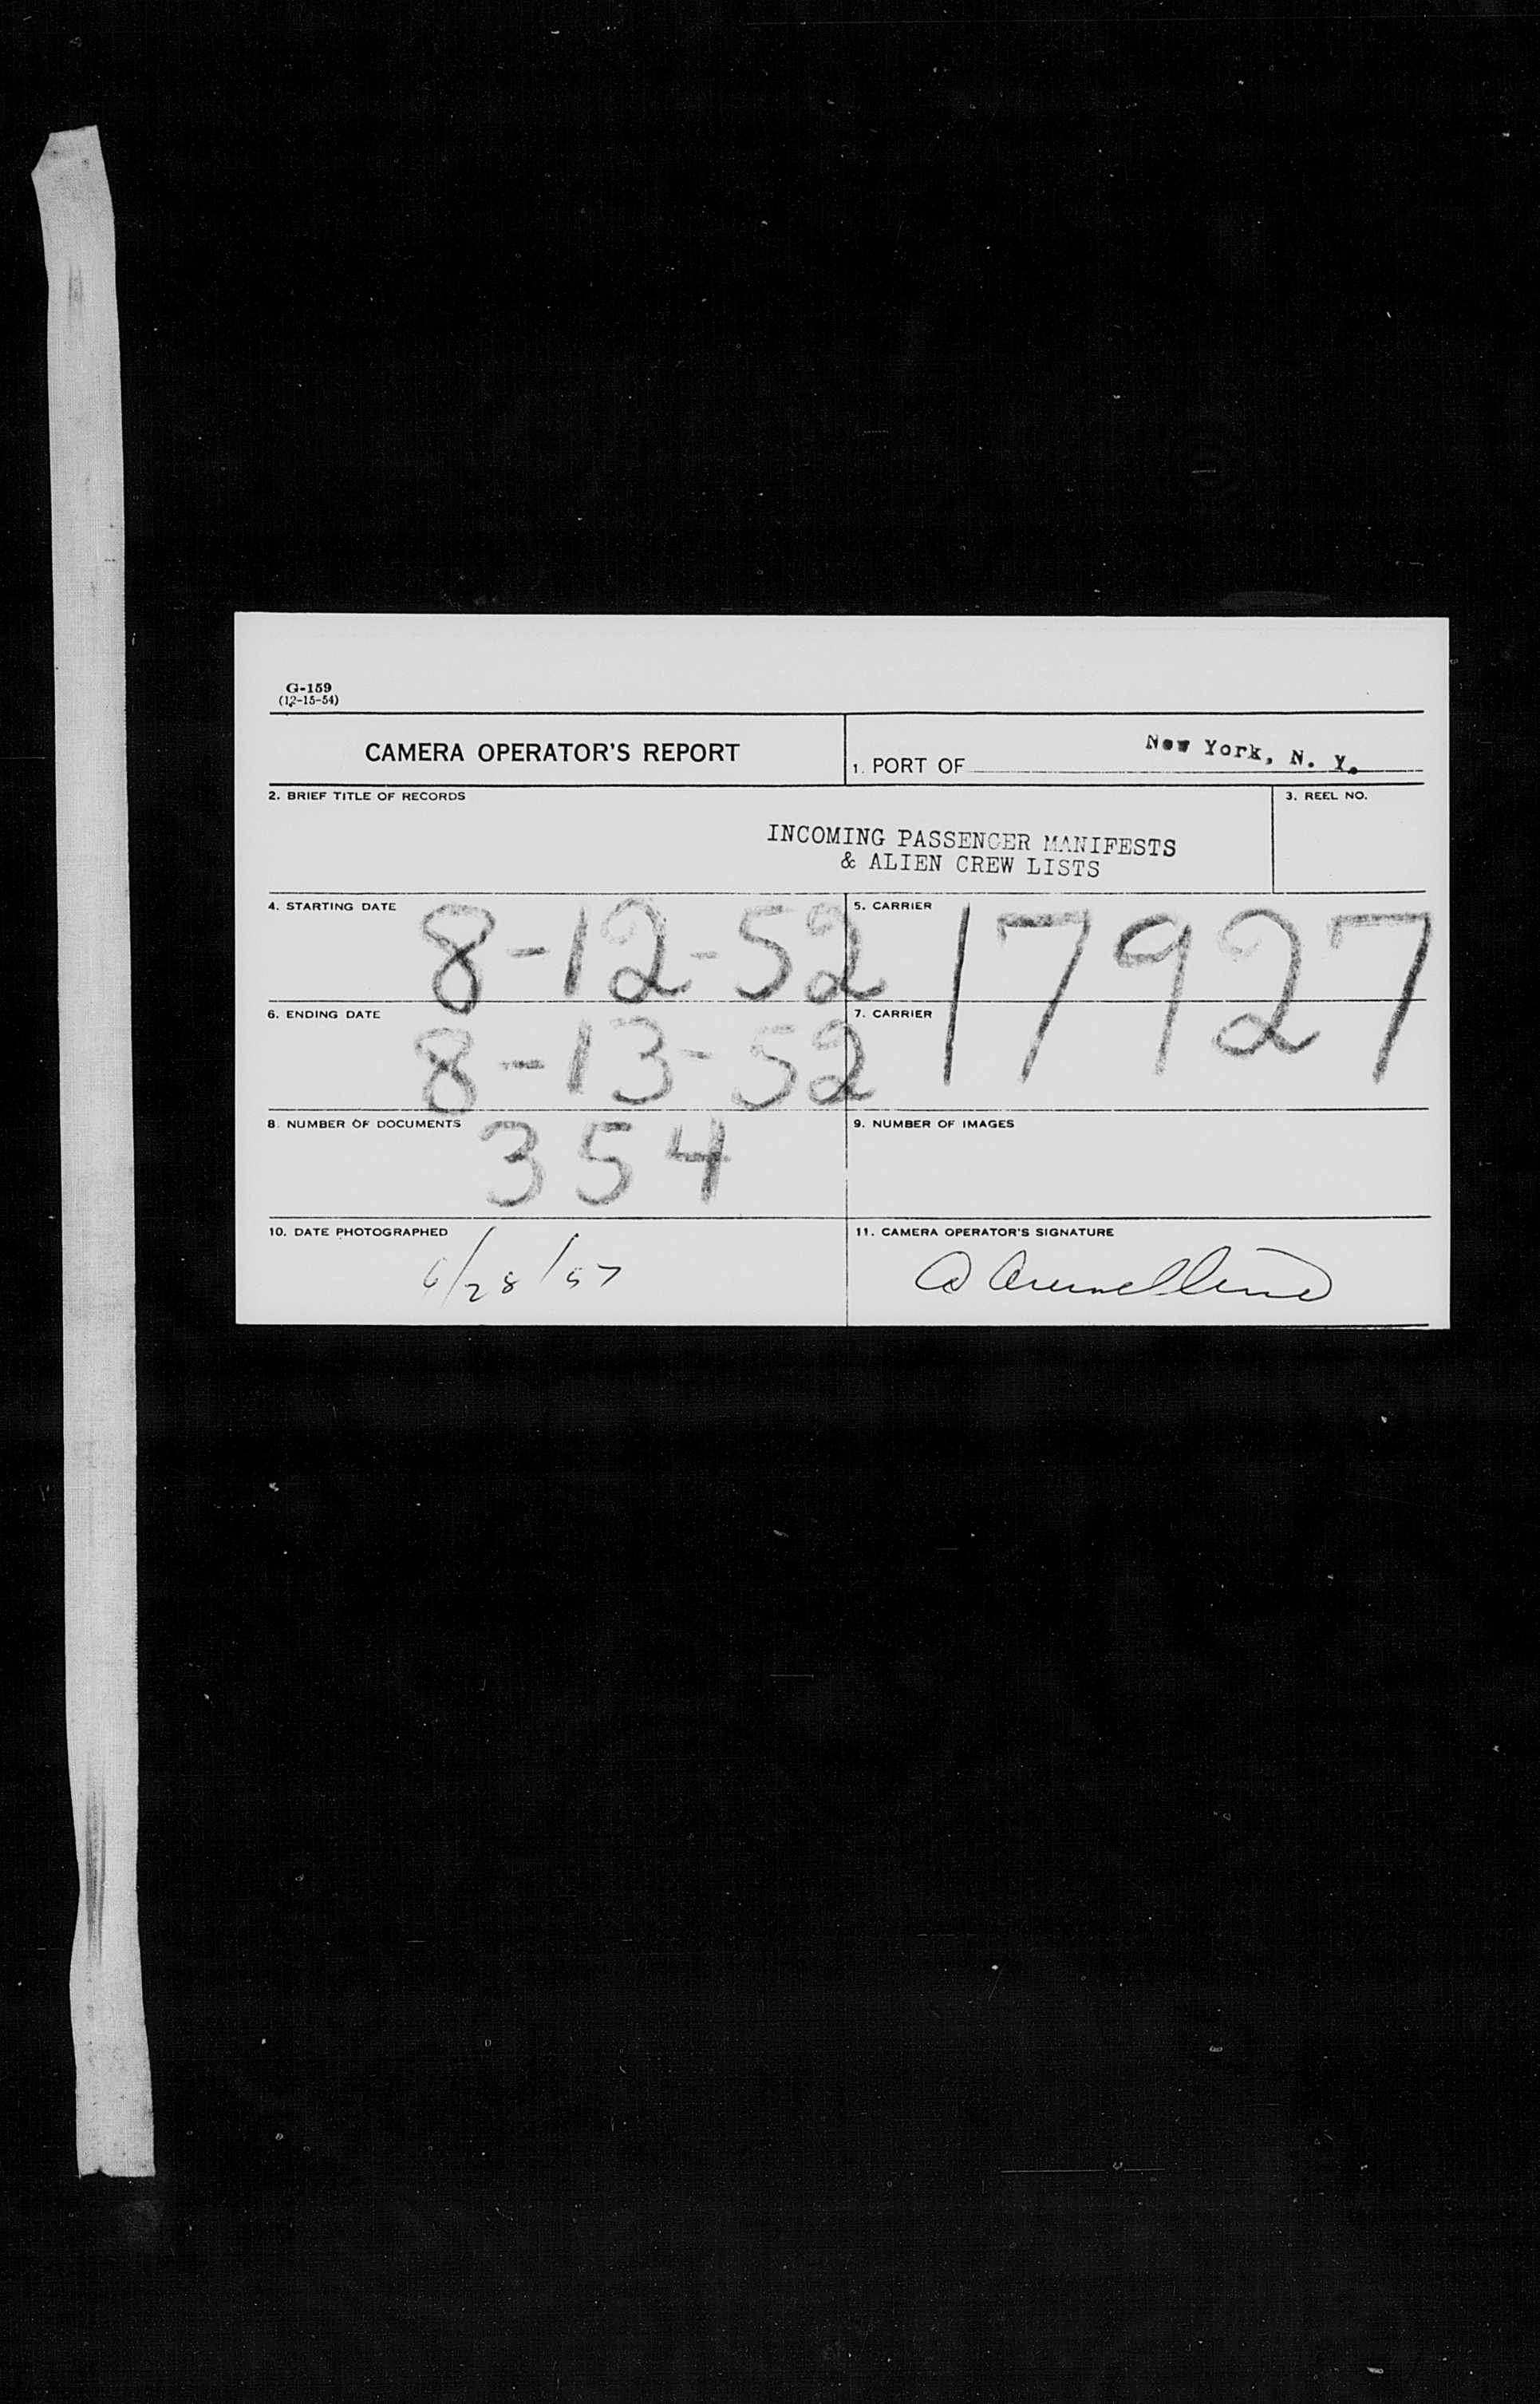 G-159
(12-15-54)
CAMERA OPERATOR'S REPORT
1. PORT OF New York, N. Y.
2. BRIEF TITLE OF RECORDS
3. REEL NO.
INCOMING PASSENGER MANIFESTS
& ALIEN CREW LISTS
4. STARTING DATE 8-12-52
5. CARRIER 17927
6. ENDING DATE 8-13-52
7. CARRIER
8. NUMBER OF DOCUMENTS 354
9. NUMBER OF IMAGES
10. DATE PHOTOGRAPHED 6/28/57
11. CAMERA OPERATOR'S SIGNATURE